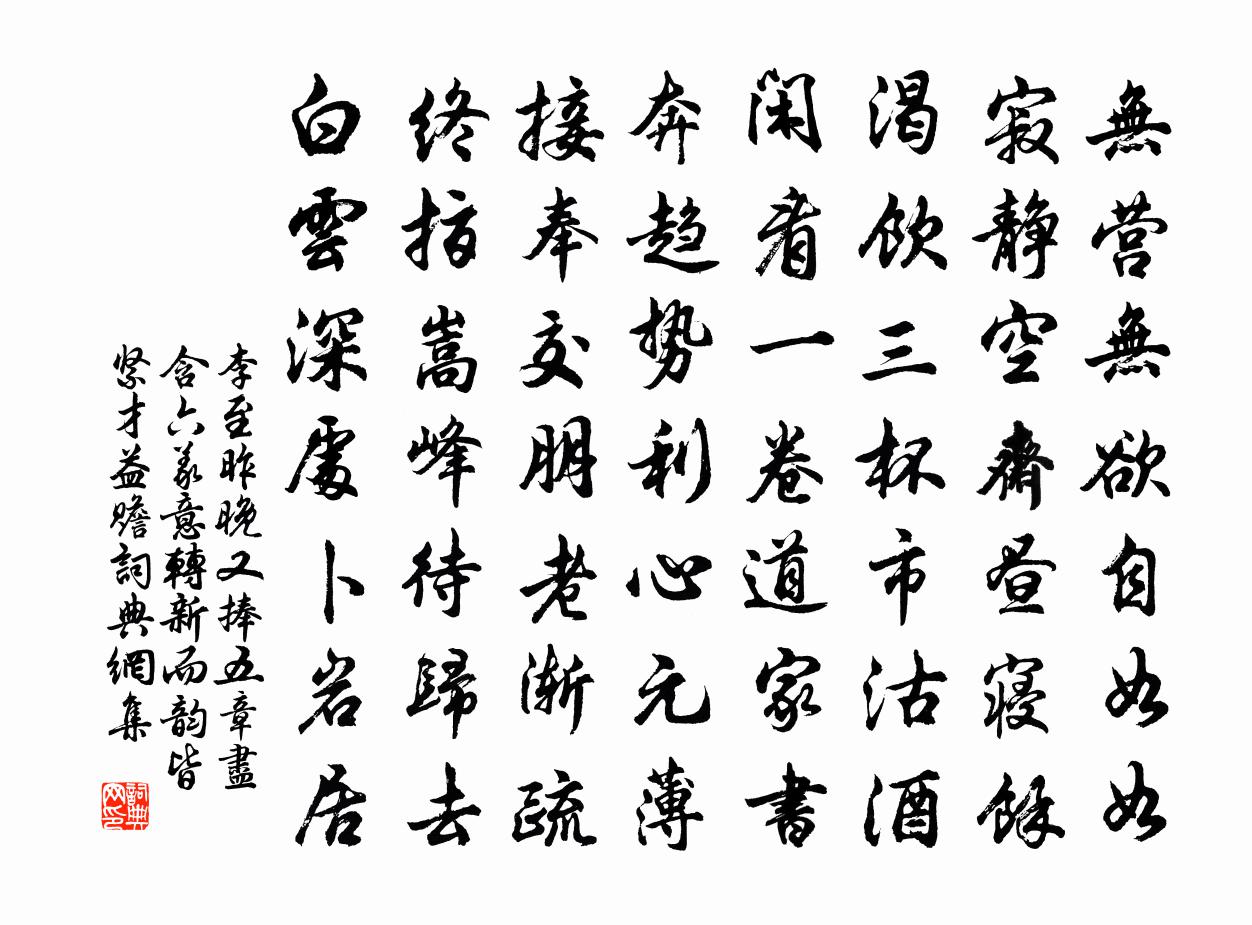 無营無欲自如如
寂静空齋昼寝餘
渴飲三杯市沽酒
闲看一卷道家書
奔趋势利心元薄
接奉交朋老漸疏
终指嵩峰待歸去
白雲深處卜岩居
李至昨晚又捧五章盡
含六義意轉新而韵皆
紧才益赡詞典網集
詞典网印